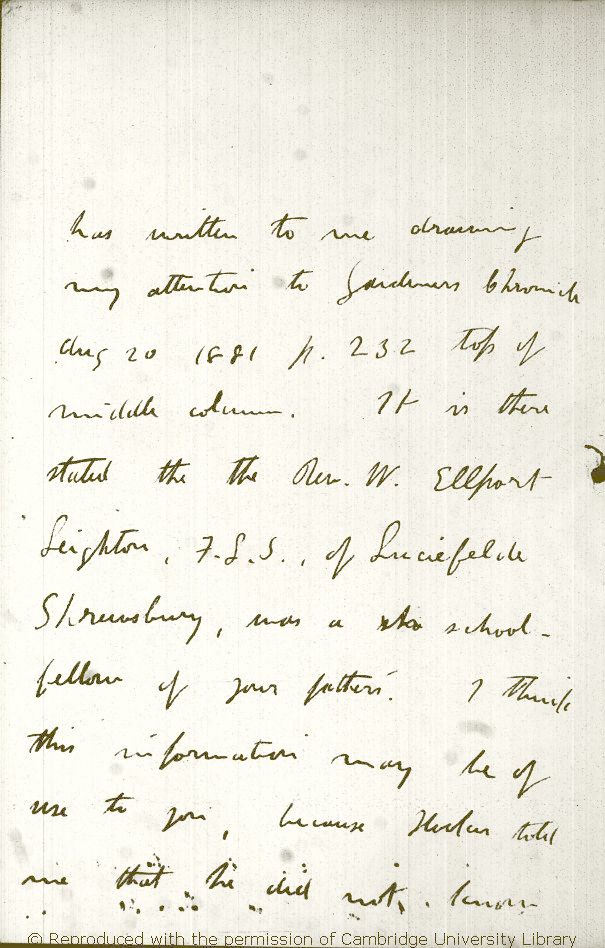 has written to me drawing
my attention to Gardeners Chronicle
Aug 20 1881 p. 232 top of
middle column. It is there
stated the the Rev. W. Ellport
Leighton, F.L.S., of Luciefelde
Shrewsbury, was a school-
fellow of your father's. I think
this information may be of
use to you, because told
me that he did not know
© Reproduced with the permission of Cambridge University Library